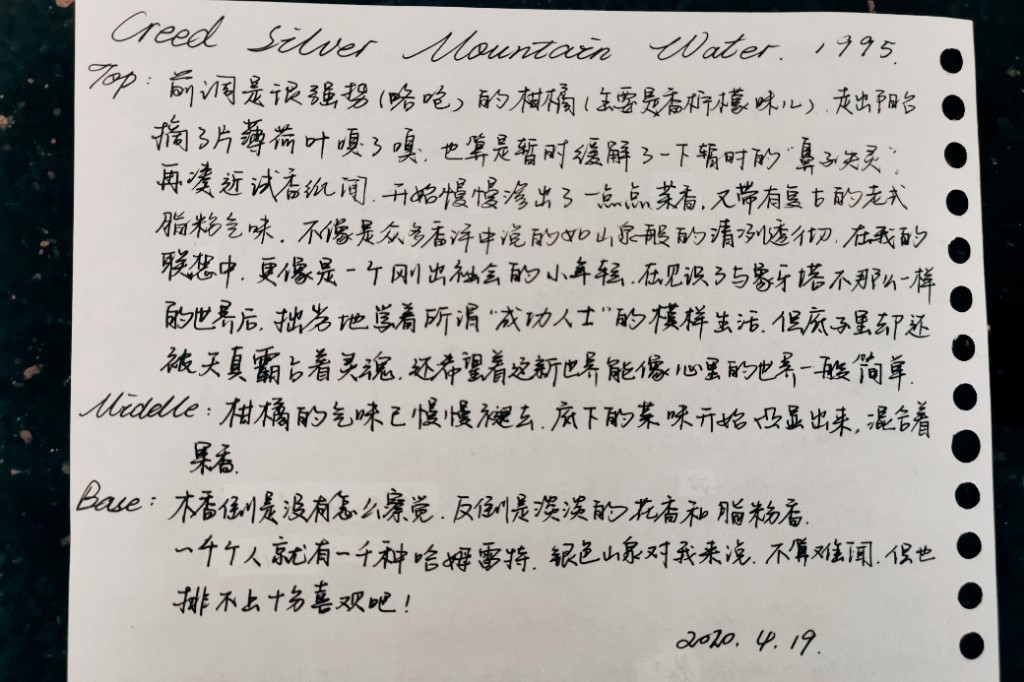 Creed Silver Mountain Water. 1995.
Top: 前调是很强势(略呛)的柑橘(主要是香柠檬味儿). 走出阳台
摘了片薄荷叶嗅了嗅. 也算是暂时缓解了一下暂时的"鼻子失灵".
再凑近试香纸闻. 开始慢慢渗出了一点点茶香, 又带有复古的老式
脂粉气味. 不像是众多香评中说的如山泉般的清冽透彻. 在我的
联想中, 更像是一个刚出社会的小年轻. 在见识了与象牙塔不那么一样
的世界后, 拙劣地学着所谓"成功人士"的模样生活. 但底子里却还
被天真霸占着灵魂. 还希望着这新世界能像心里的世界一般简单.
Middle: 柑橘的气味已慢慢褪去. 底下的茶味开始凸显出来, 混合着
果香.
Base: 木香倒是没有怎么察觉. 反倒是淡淡的花香和脂粉香.
一千个人就有一千种哈姆雷特. 银色山泉对我来说. 不算难闻. 但也
排不上十分喜欢吧!
2020. 4. 19.